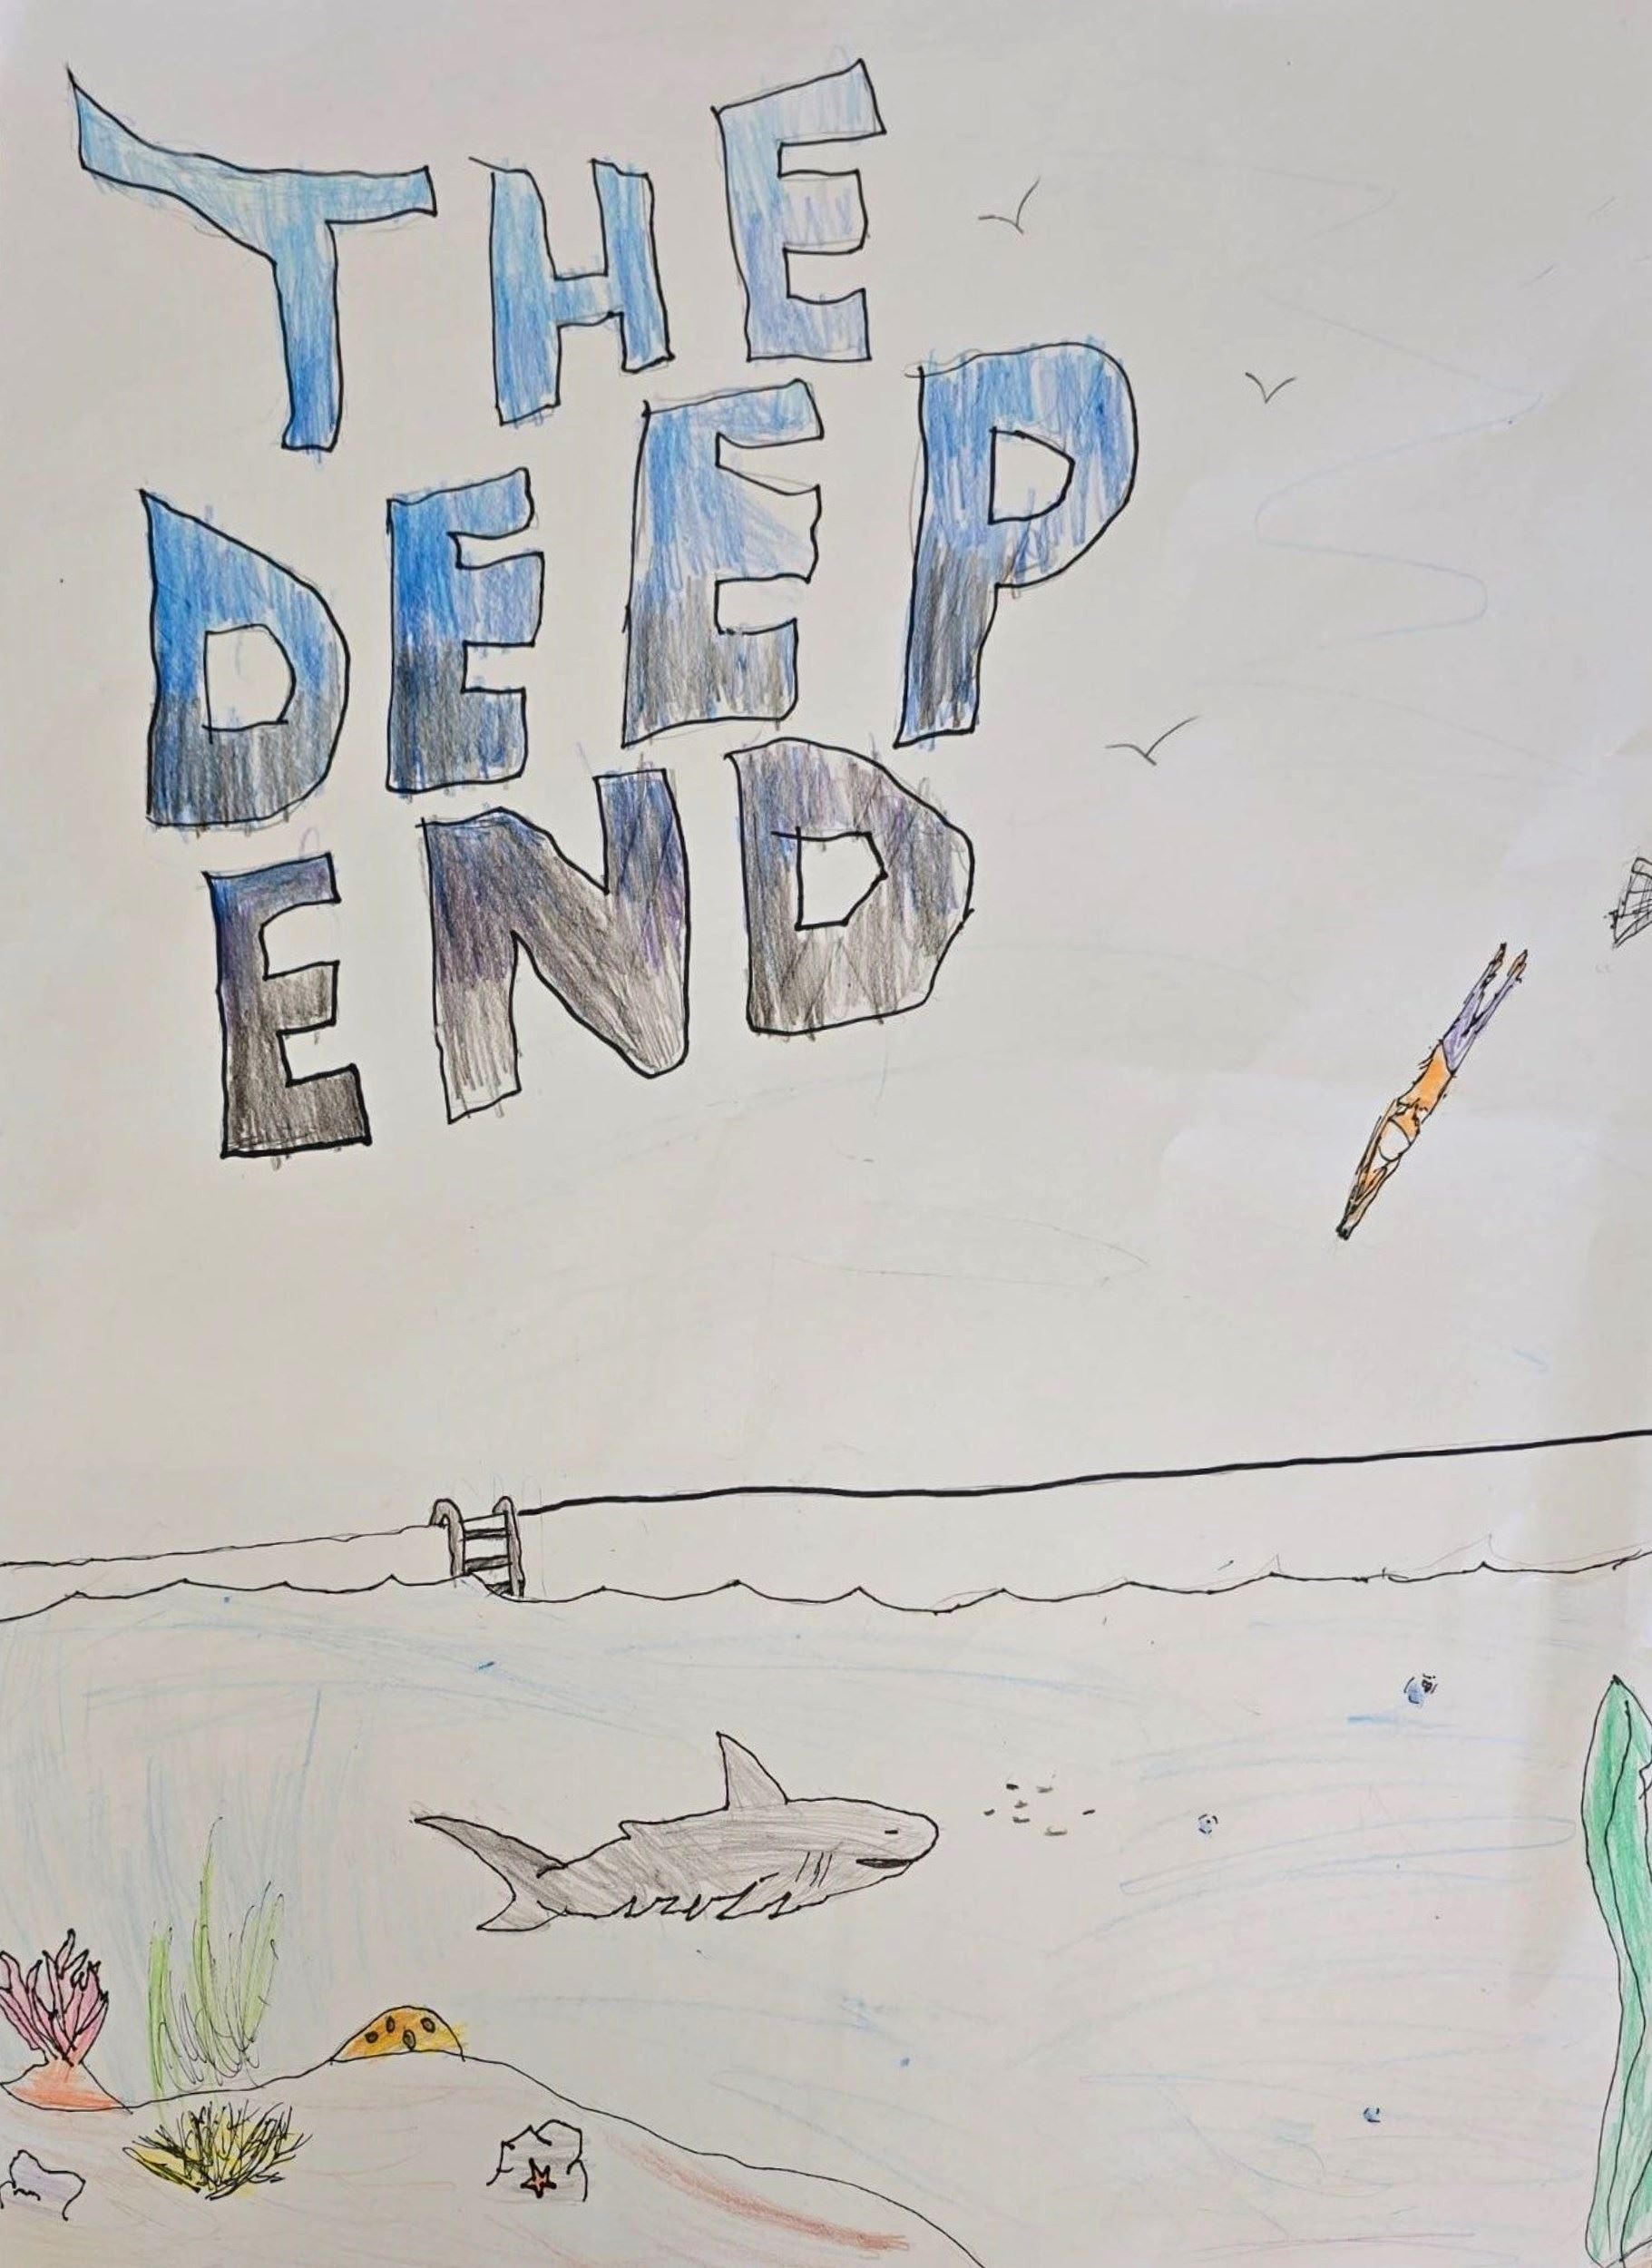 THE
DEEP
END